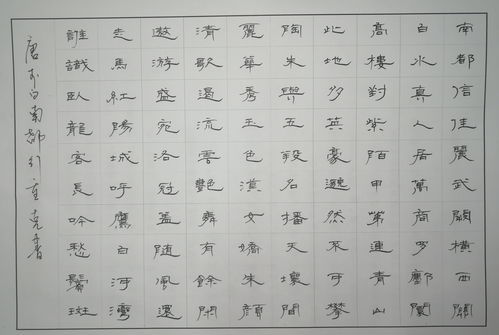 南都信佳麗武闕橫西關
白水真人居萬商羅鄽闤
高樓對紫陌甲第連青山
此地多英豪邈然不可攀
陶朱與五羖名播天壤間
麗華秀玉色漢女嬌朱顏
清歌遏流雲艷舞有餘閑
遨游盛宛洛冠蓋随風還
走馬紅陽城呼鷹白河灣
誰識臥龍客長吟愁鬢斑
唐李白南都行重克書